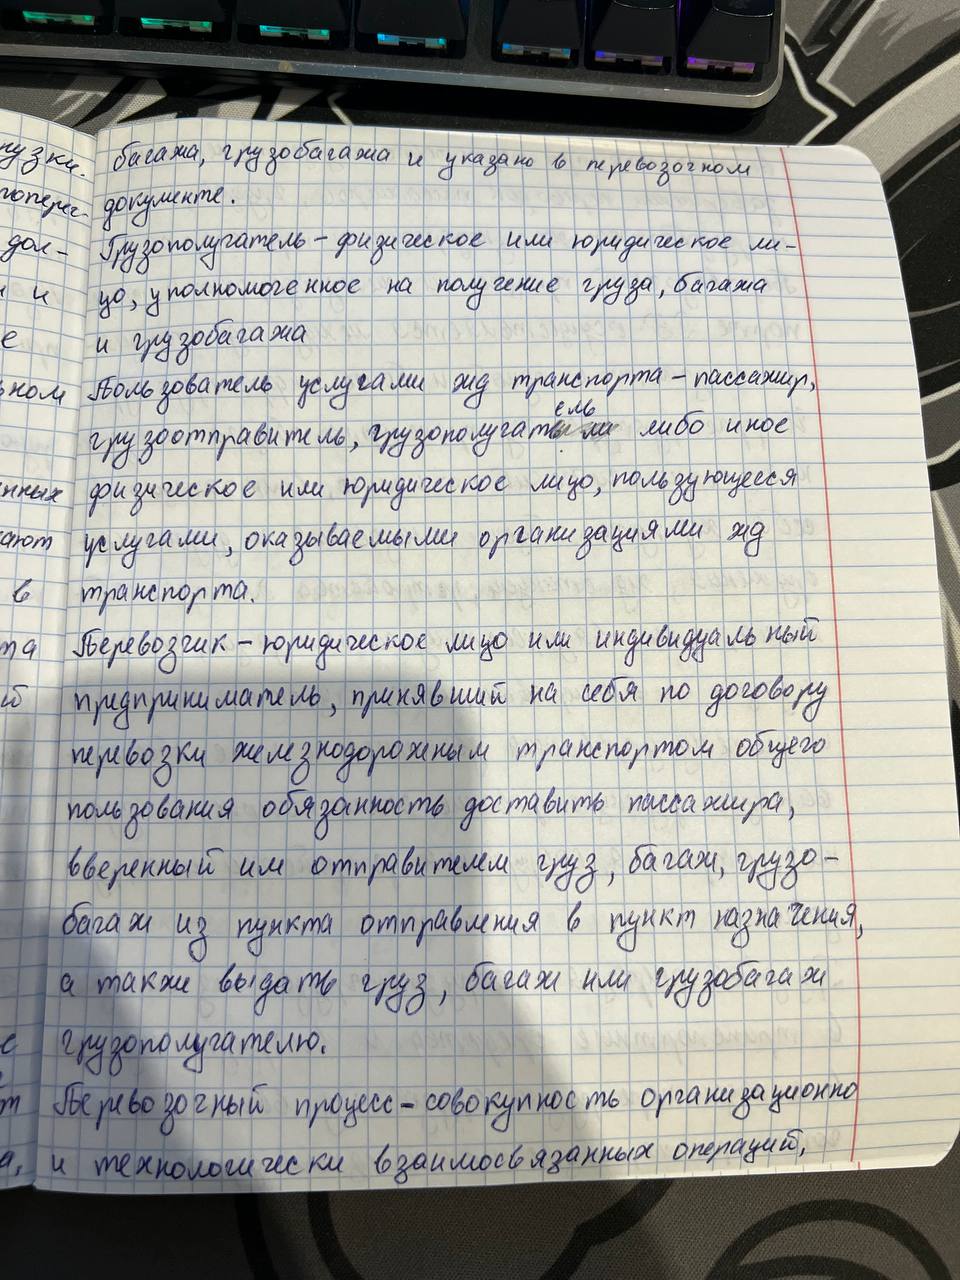 багажа, грузобагажа и указано в перевозочном
документе.
Грузополучатель – физическое или юридическое ли-
цо, уполномоченное на получение груза, багажа
и грузобагажа
Пользователь услугами жд транспорта – пассажир,
грузоотправитель, грузополучатель либо иное
физическое или юридическое лицо, пользующееся
услугами, оказываемыми организациями жд
транспорта.
Перевозчик – юридическое лицо или индивидуальный
предприниматель, принявший на себя по договору
перевозки железнодорожным транспортом общего
пользования обязанность доставить пассажира,
вверенный им отправителем груз, багаж, грузо-
багаж из пункта отправления в пункт назначения,
а также выдать груз, багаж или грузобагаж
грузополучателю.
Перевозочный процесс – совокупность организационно
и технологически взаимосвязанных операций,